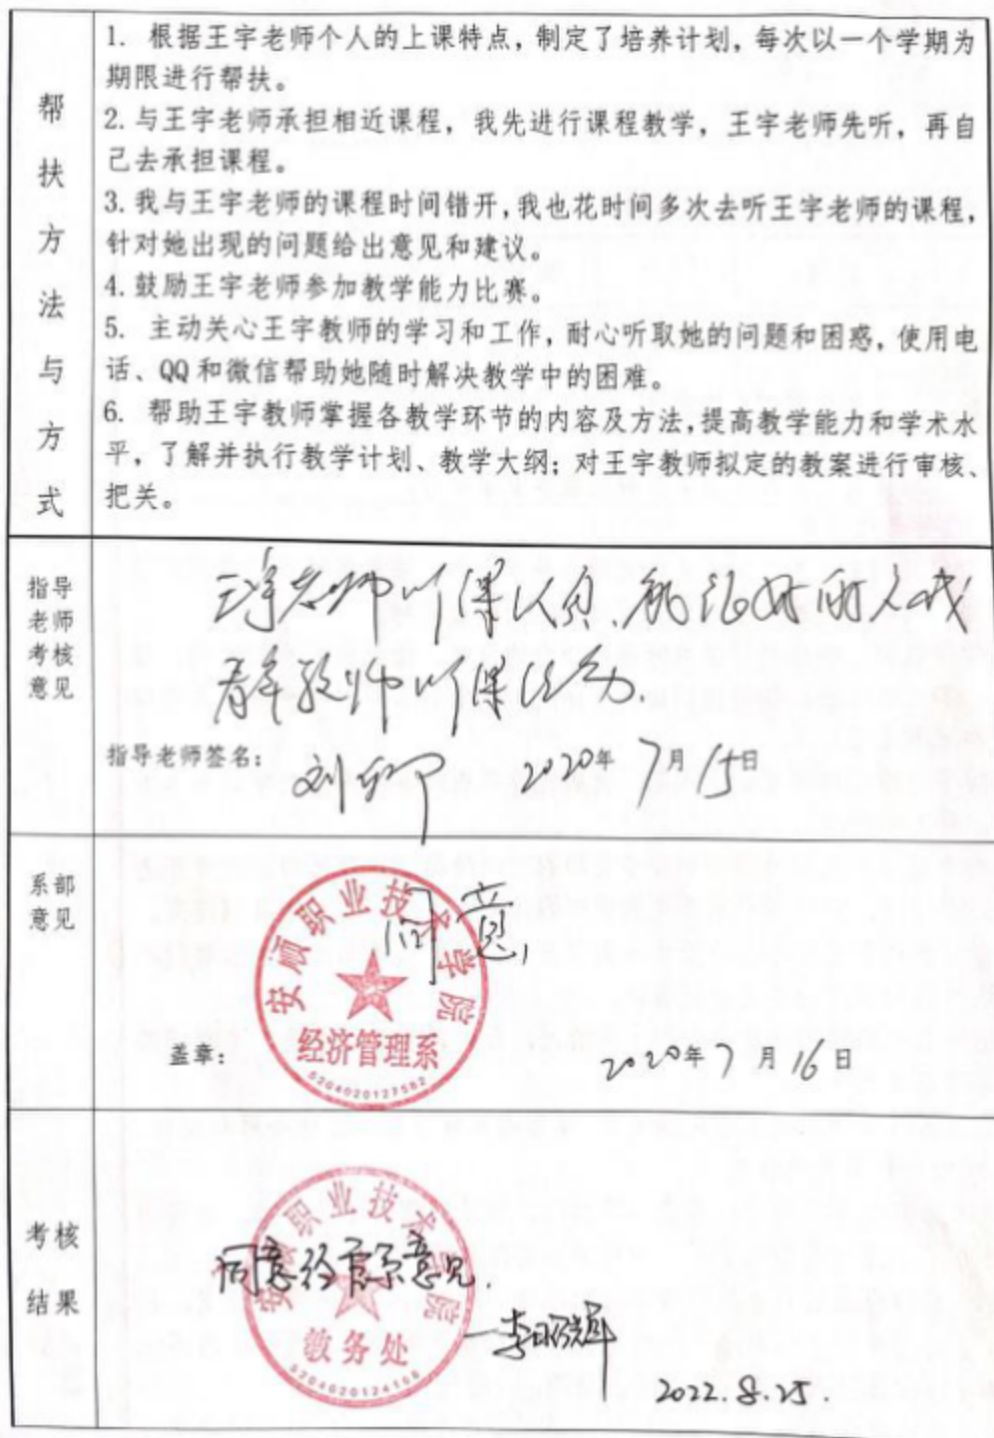 帮扶方法与方式
1. 根据王宇老师个人的上课特点，制定了培养计划，每次以一个学期为
期限进行帮扶。
2. 与王宇老师承担相近课程，我先进行课程教学，王宇老师先听，再自
己去承担课程。
3. 我与王宇老师的课程时间错开，我也花时间多次去听王宇老师的课程，
针对她出现的问题给出意见和建议。
4. 鼓励王宇老师参加教学能力比赛。
5. 主动关心王宇教师的学习和工作，耐心听取她的问题和困惑，使用电
话、QQ和微信帮助她随时解决教学中的困难。
6. 帮助王宇教师掌握各教学环节的内容及方法，提高教学能力和学术水
平，了解并执行教学计划、教学大纲；对王宇教师拟定的教案进行审核、
把关。
指导
老师
考核
意见
王宇老师听课认真、能很好的完成
青年教师听课任务
指导老师签名：
2020年7月15日
系部
意见
同意
安顺职业技术学院
经济管理系
5204020127582
盖章：
2020年7月16日
考核
结果
安顺职业技术学院
同意经管系意见.
教务处
5204020124168
2022.8.25.